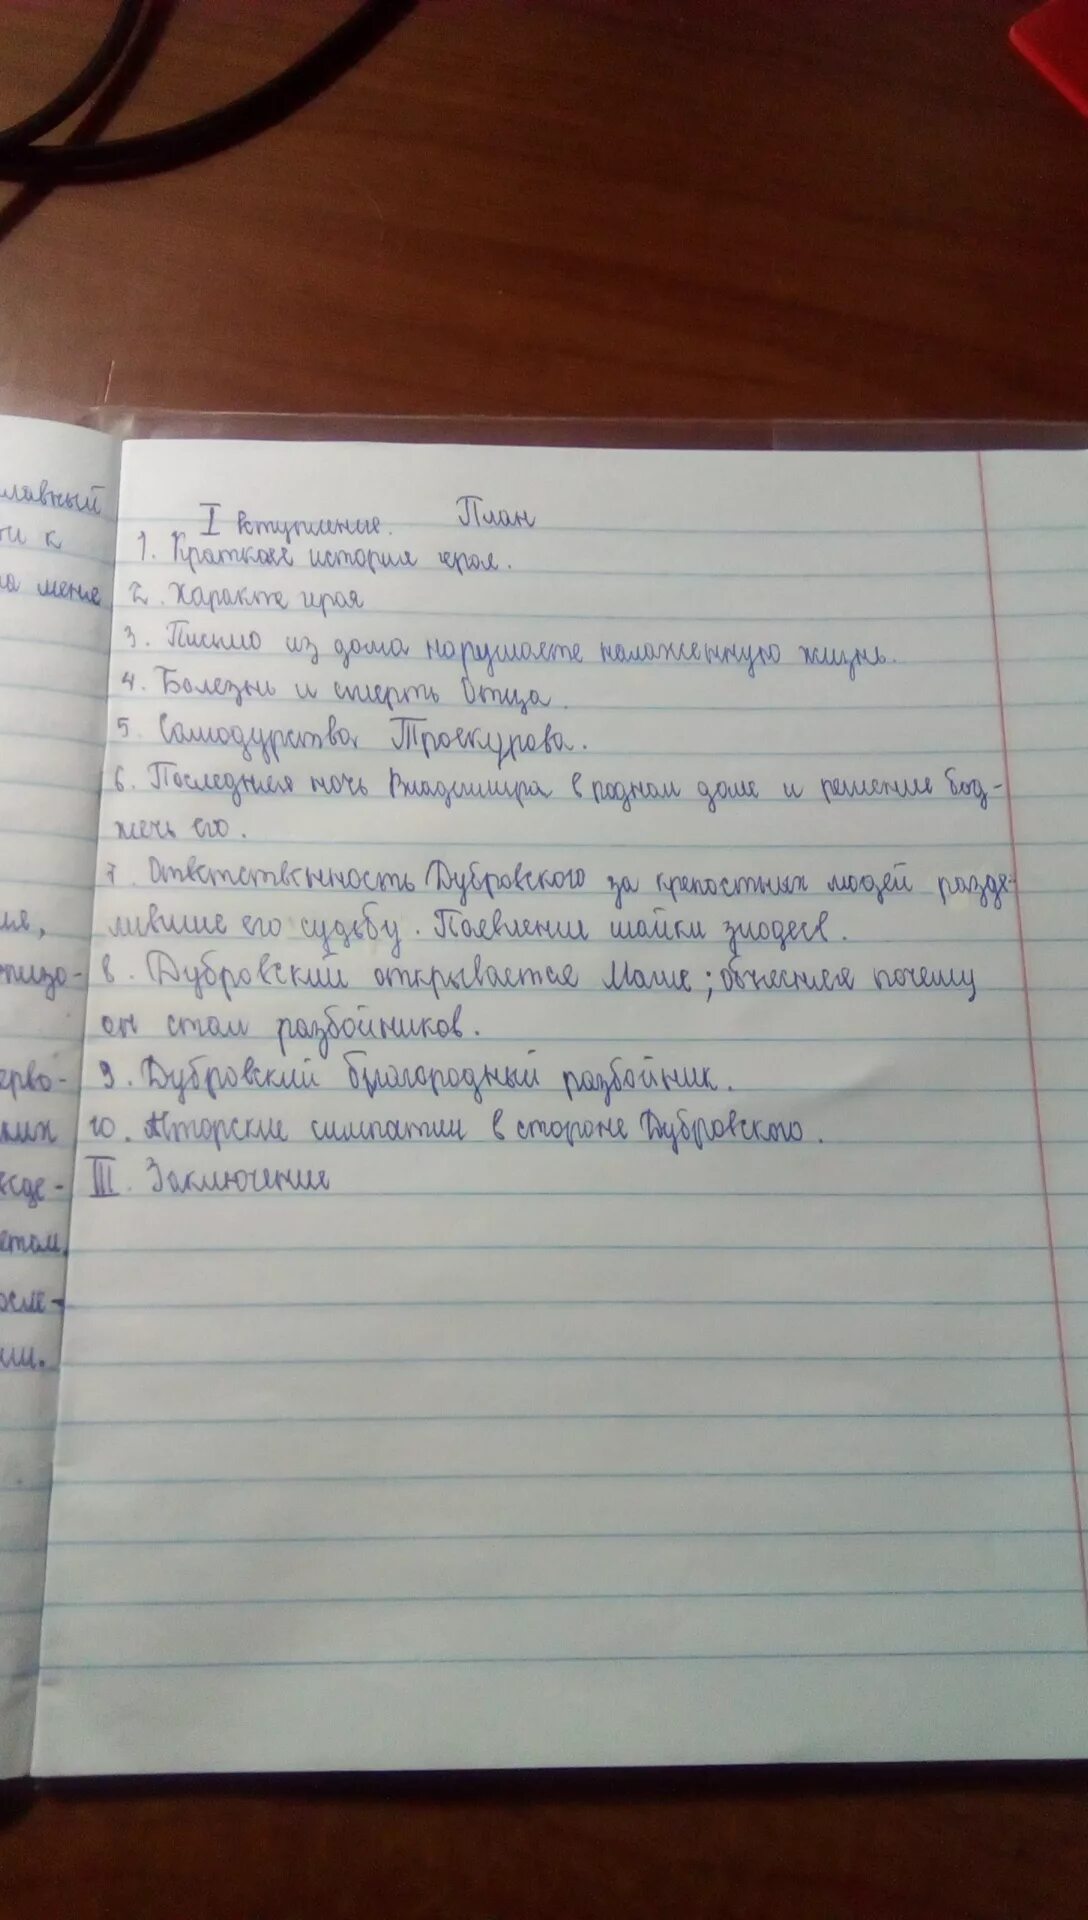 лавный
и к
а мене
ля,
пизо-
ерво-
ких
жде-
етом,
осле-
ии.
План
I вступление.
1. Краткая история героя.
2. Характе героя
3. Письмо из дома нарушаете налаженную жизнь.
4. Болезнь и смерть Отца.
5. Самодурства Троекурова.
6. Последняя ночь Владимира в родном доме и решение под-
жечь его.
7. Ответственность Дубровского за крепостных людей разде-
лившие его судьбу. Появлении шайки злодеев.
8. Дубровский открывается Маше; объесняея почему
он стал разбойников.
9. Дубровский благородный разбойник.
10. Авторские симпатии в стороне Дубровского.
III. Заключение